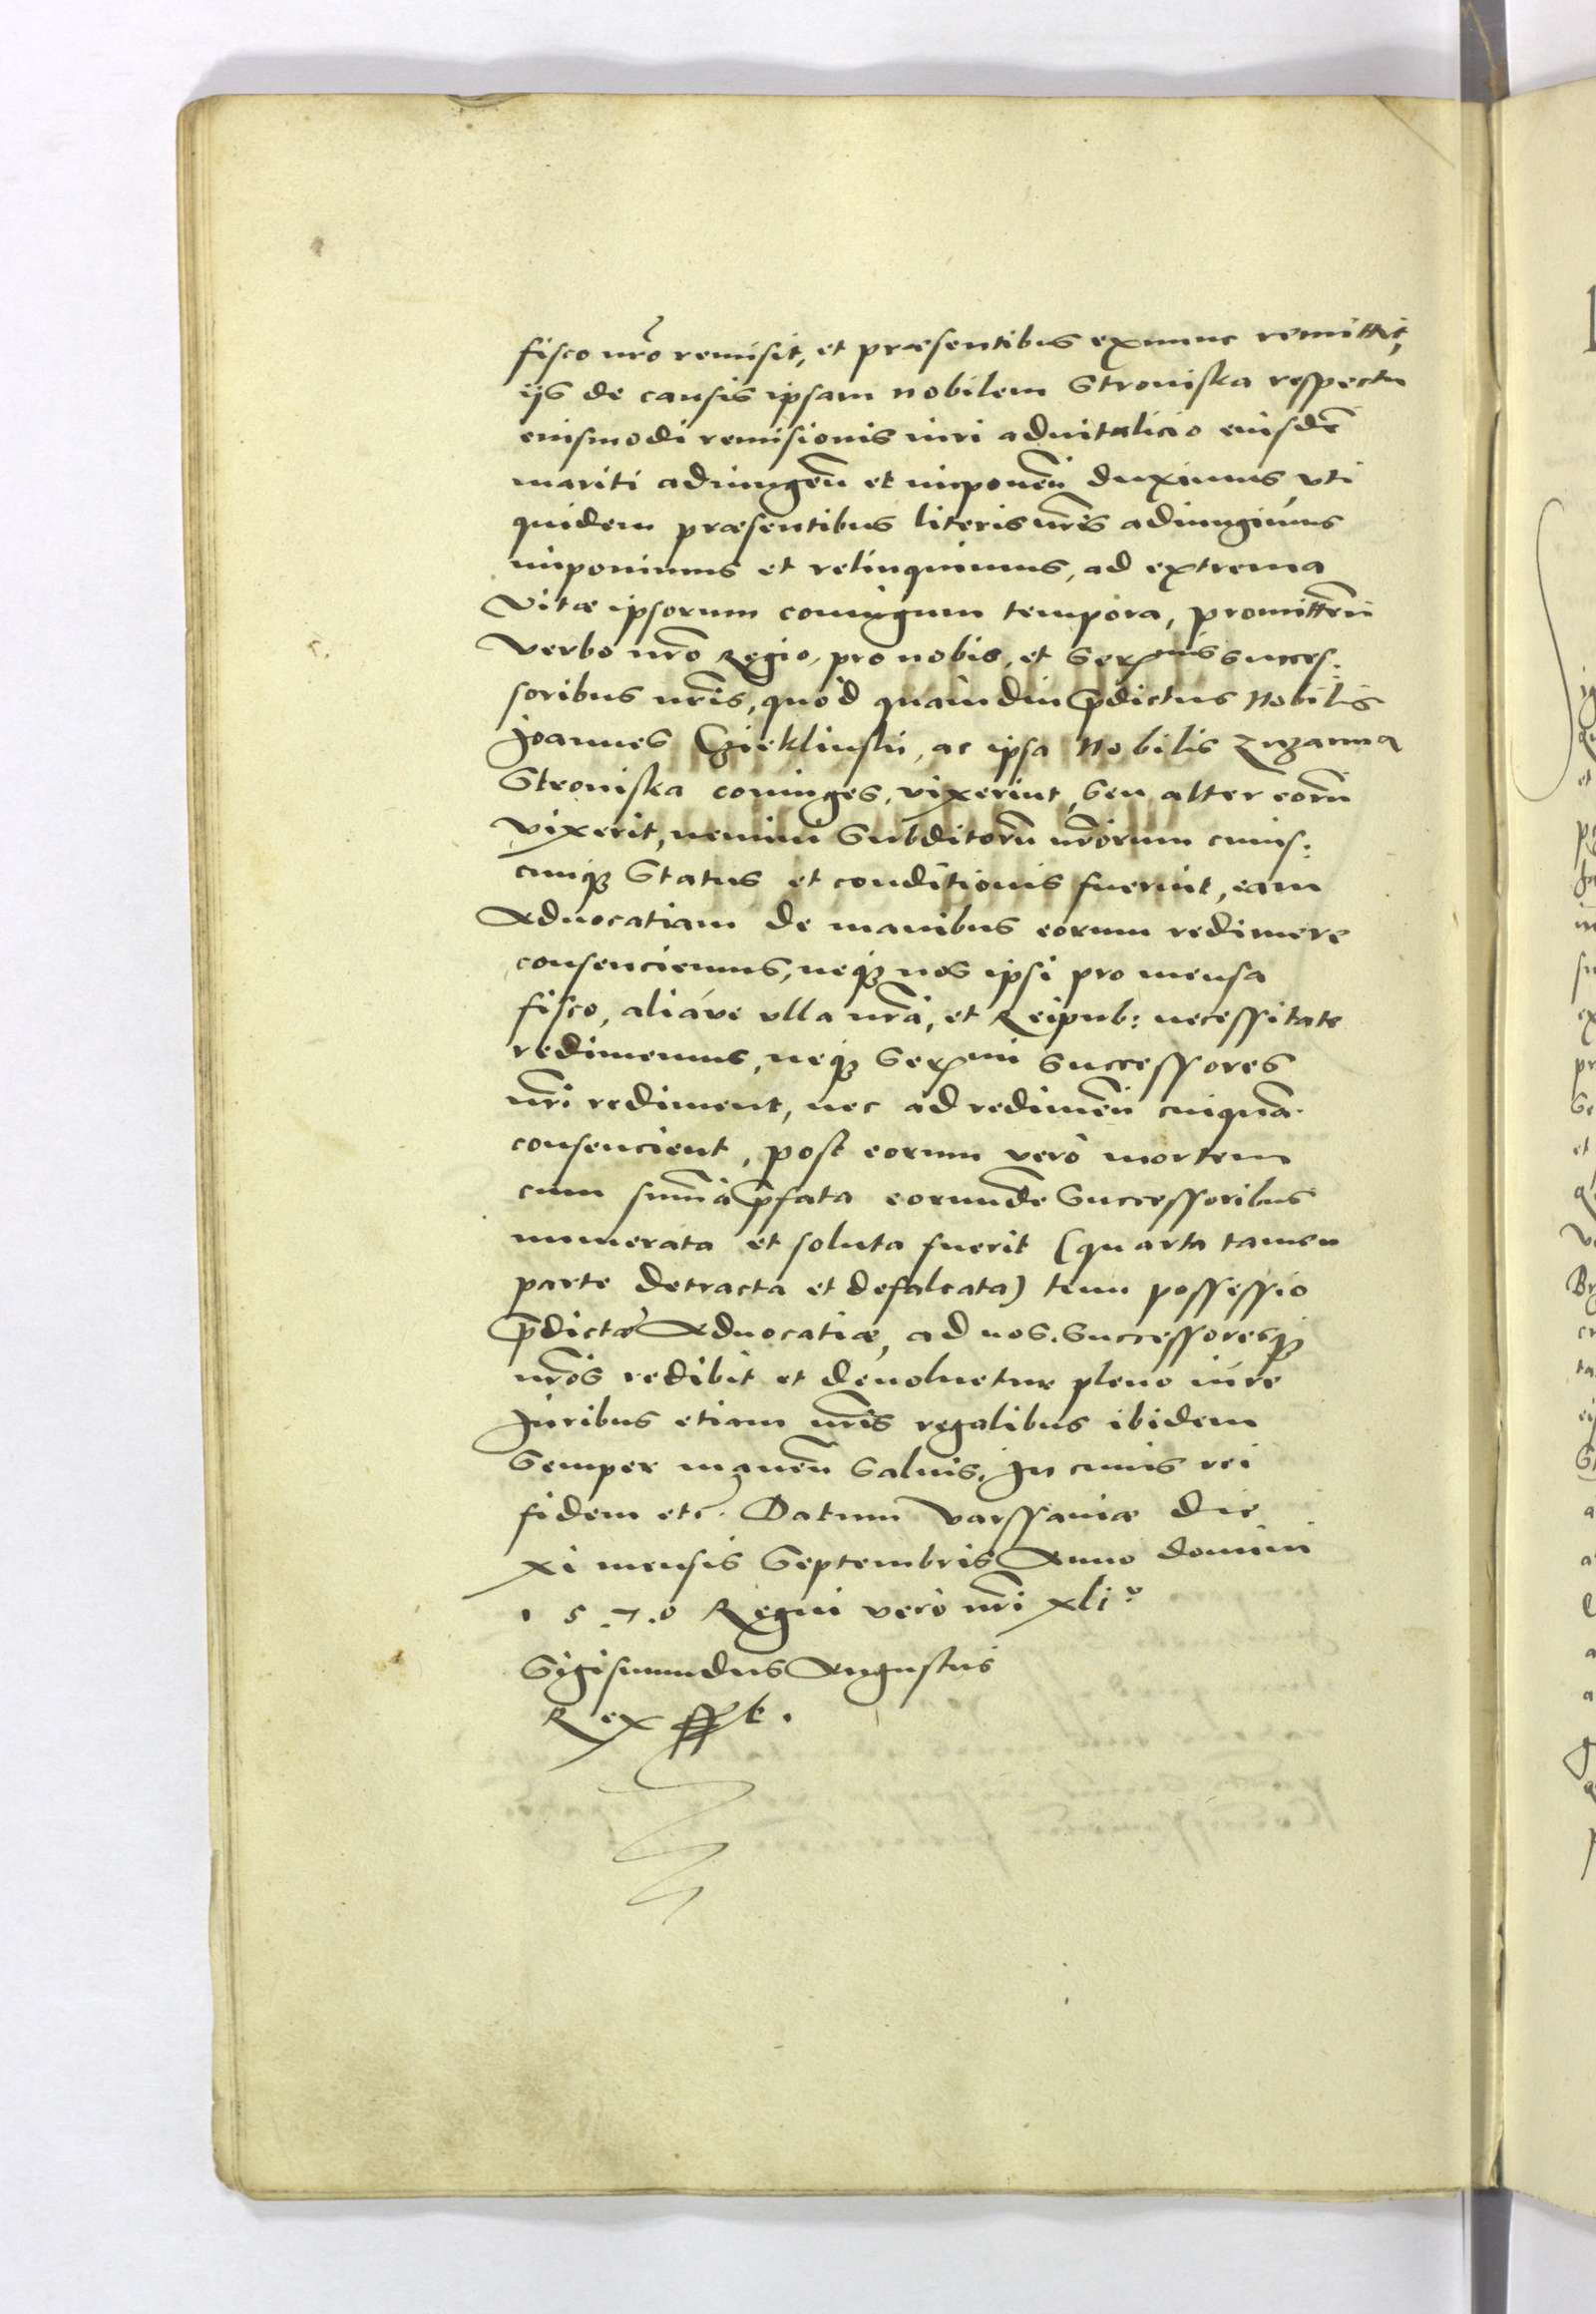 fisco nr̃o remisit, et præsentibus exnunc remittit,
ijs de causis ipsam nobilem Stroniska respectu
eiusmodi remisionis iuri aduitalicio eiusdẽ
mariti adiungeñ et imponeñ duximus, vti
quidem præsentibus literis nr̃is adiungimus
imponimus et relinquimus, ad extrema
vitæ ipsorum coniugum tempora, promitteñ
verbo nr̃o Regio, pro nobis, et Serᵐⁱˢ succes:
soribus nr̃is, quòd quamdiu p̃dictus Nobilis
Joannes Czieklinski, ac ipsa Nobilis Zuzanna
Stroniska coniuges, vixerint, seu alter eorũ
vixerit, nemini Subditorũ nr̃orum cuius:
cunqꝫ Status et conditionis fuerint, eam
Aduocatiam de manibus eorum redimere
consenciemus, neqꝫ nos ipsi pro mensa
fisco, aliáve vlla nr̃a, et Reipub: necessitate
redimemus, neqꝫ Serᵐⁱ Successores
nr̃i rediment, nec ad redimeñ cuiquã
consencient, post eorum verò mortem
cum sum̃a p̃fata eorundẽ Successoribus
numerata et soluta fuerit (quarta tamen
parte detracta et defalcata) tum possessio
p̃dictæ Aduocatiæ, ad nos. Successoresqꝫ
nr̃os redibit et deuoluetur pleno iure
Juribus etiam nr̃is regalibus ibidem
Semper maneñ Saluis. In cuius rei
fidem etc. Datum Varssauiæ die
xi mensis Septembris Anno domini
1570 Regni verò nr̃i xliº
Sigismundus Augustus
Rex sst.